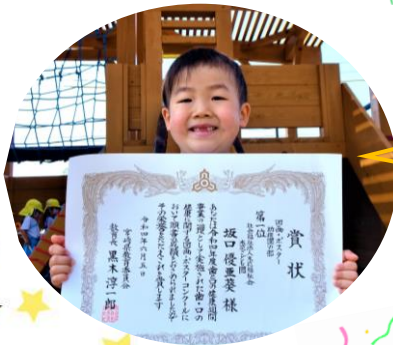 賞状
図画・ポスター
幼稚園の部
第一位
坂口優亜葵 様
あなたは令和四年度歯と口の健康週間
事業の一環として実施された歯・口の
健康に関する図画・ポスターコンクールに
おいて頭書の成績をおさめられましたので
その栄誉をたたえこれを賞します
令和四年六月五日
宮崎県教育委員会
教育長 黒木淳一郎